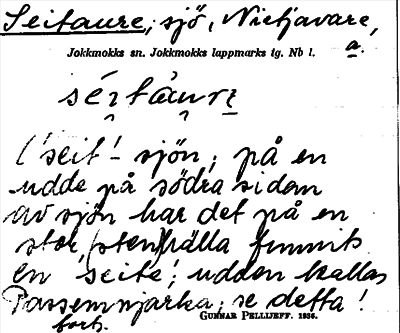 Seitaure, sjö, Nietjavare,
a.
Jokkmokks sn. Jokkmokks lappmarks tg. Nb l.
séi̯tȧu̯rɛ
('seit'- sjön; på en
udde på södra sidan
av sjön har det på en
stor, (sten)hälla funnits
en 'seite'; udden kallas
Passemnjarka; se detta!
GUNNAR PELLIJEFF. 1936.
forts.